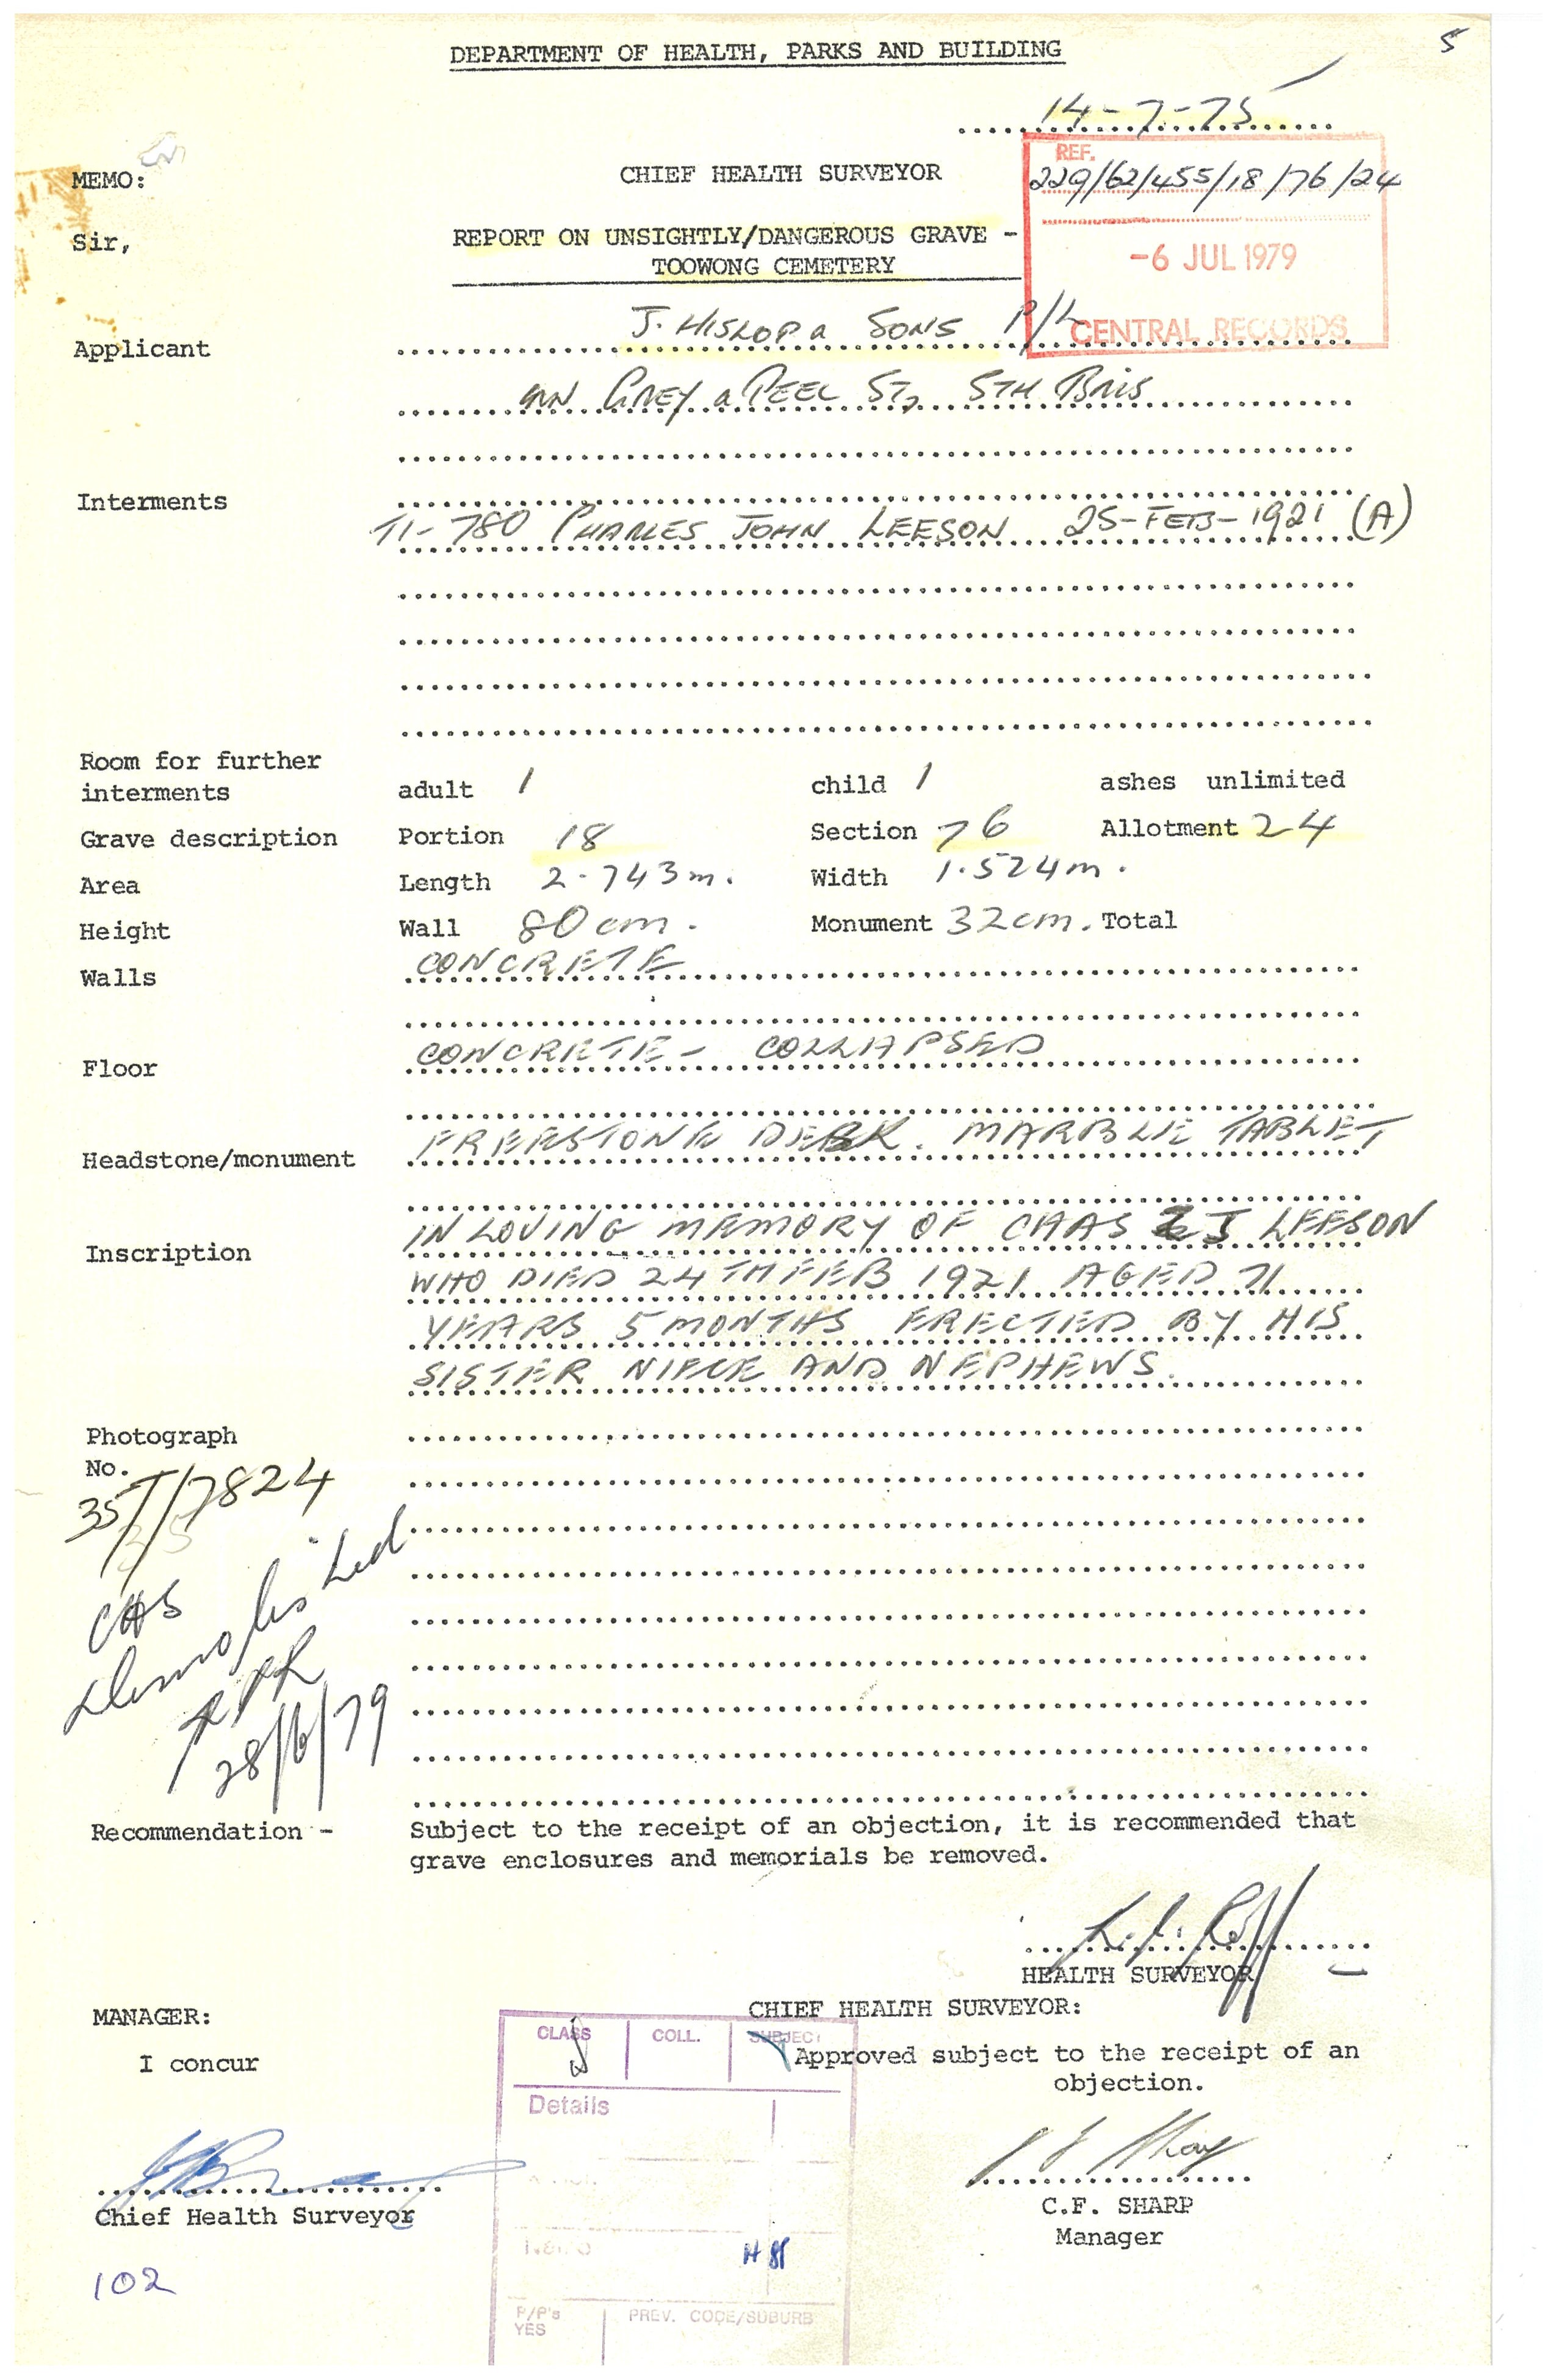 5
DEPARTMENT OF HEALTH, PARKS AND BUILDING
14-7-75
MEMO:
CHIEF HEALTH SURVEYOR
REF.
229/62/455/18/76/24
Sir,
REPORT ON UNSIGHTLY/DANGEROUS GRAVE -
TOOWONG CEMETERY
-6 JUL 1979
CENTRAL RECORDS
Applicant
J. HISLOP & SONS P/L
CNR GREY & PEEL ST, STH BRIS
Interments
71-780 CHARLES JOHN LEESON 25-FEB-1921 (A)
Room for further
interments adult 1 child 1 ashes unlimited
Grave description Portion 18 Section 76 Allotment 24
Area Length 2.743m. Width 1.524m.
Height Wall 80cm. Monument 32cm. Total
Walls CONCRETE
Floor CONCRETE - COLLAPSED
Headstone/monument FREESTONE DESK. MARBLE TABLET
Inscription IN LOVING MEMORY OF CHAS J LEESON
WHO DIED 24TH FEB 1921 AGED 71
YEARS 5 MONTHS ERECTED BY HIS
SISTER NIECE AND NEPHEWS.
Photograph
No.
35T/7824
CHS
Demolished
28/6/79
Recommendation - Subject to the receipt of an objection, it is recommended that
grave enclosures and memorials be removed.
HEALTH SURVEYOR
MANAGER:
CHIEF HEALTH SURVEYOR:
I concur
Approved subject to the receipt of an
objection.
CLASS COLL. SUBJECT
Details
Chief Health Surveyor
C.F. SHARP
Manager
102
P/P's
YES
PREV. CODE/SUBURB